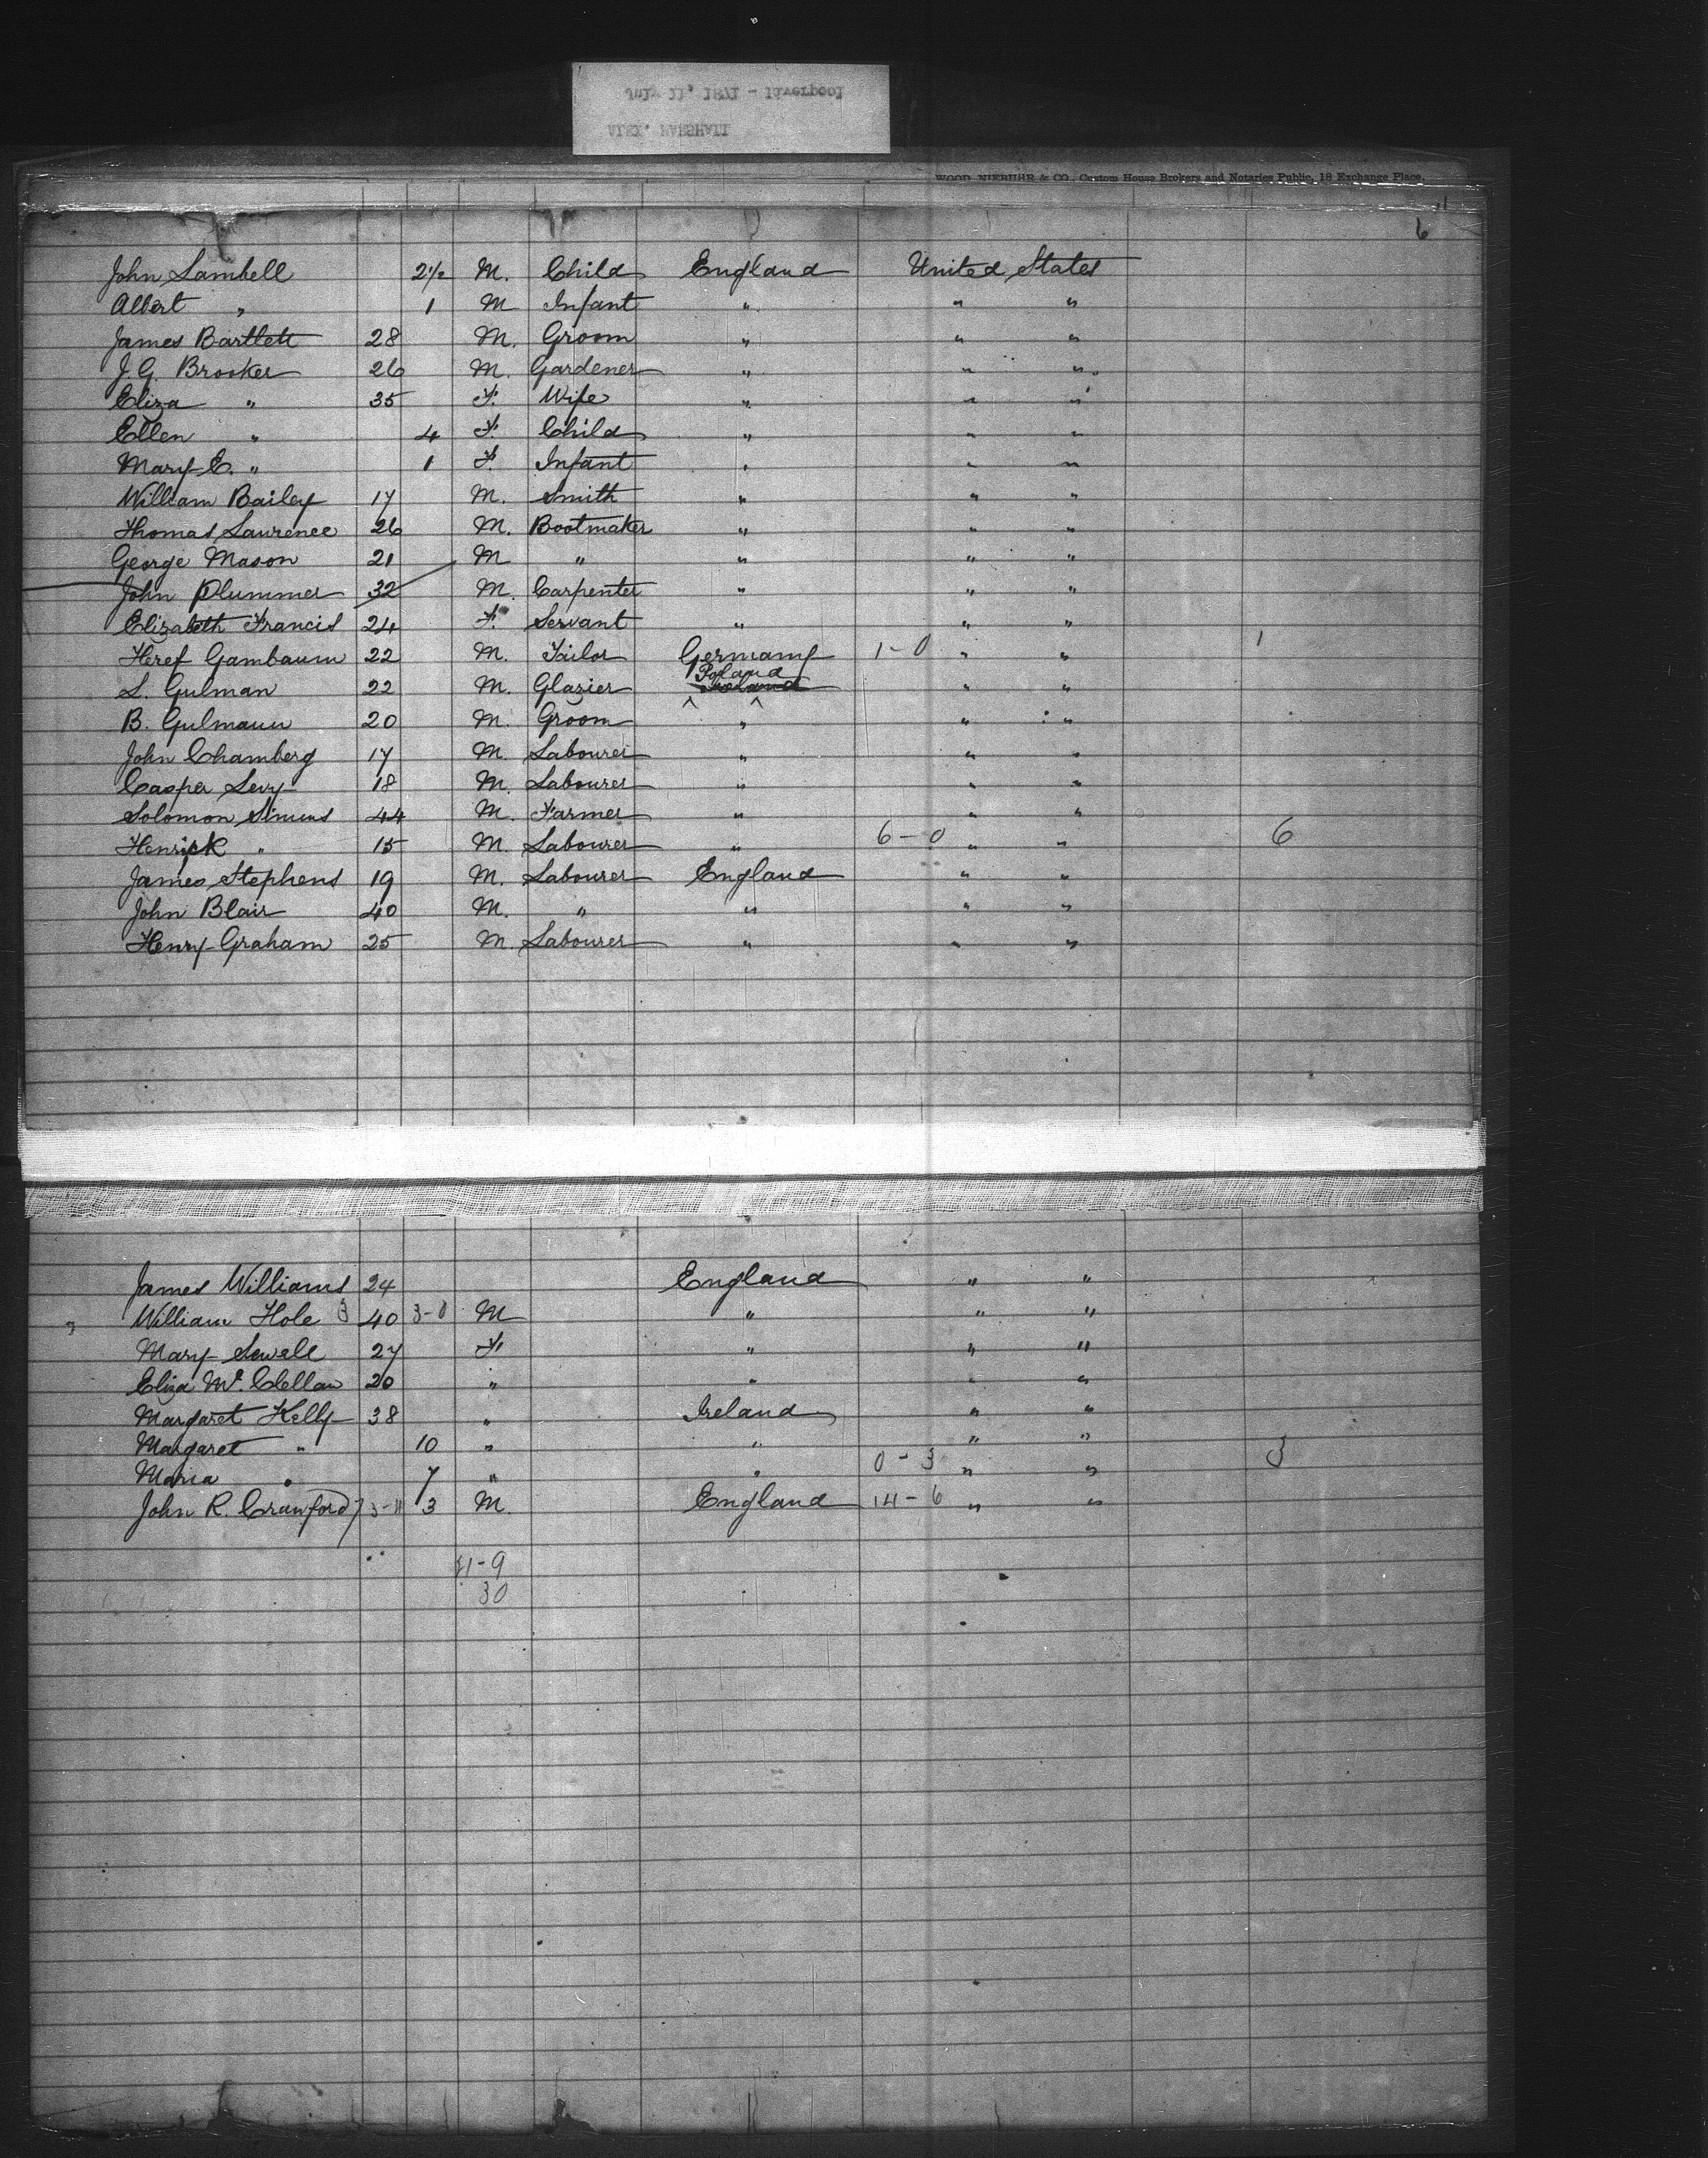 July 11, 1871 - Liverpool
ALEX. MARSHALL
WOOD, NIEBUHR & CO., Custom House Brokers and Notaries Public, 18 Exchange Place.
11
6
John Lambell 2½ M. Child England United States
Albert " 1 M Infant " " "
James Bartlett 28 M. Groom " " "
J. G. Brooker 26 M. Gardener " " "
Eliza " 35 F. Wife " " "
Ellen " 4 F. Child " " "
Mary E. " 1 F. Infant " " "
William Bailey 17 M. Smith " " "
Thomas Laurence 26 M. Bootmaker " " "
George Mason 21 M " " " "
John Plummer 32 M. Carpenter " " "
Elizabeth Francis 24 F. Servant " " "
Heref Gambaum 22 M. Tailor Germany 1-0 " " 1
L. Gulman 22 M. Glazier Poland " "
B. Gulmann 20 M. Groom " " "
John Chamberg 17 M. Labourer " " "
Casper Levy 18 M. Labourer " " "
Solomon Simms 44 M. Farmer " " "
Henrick " 15 M. Labourer " 6-0 " " 6
James Stephens 19 M. Labourer England " "
John Blair 40 M. " " " "
Henry Graham 25 M. Labourer " " "
James Williams 24 England " "
William Hole 3 40 3-0 M " " "
Mary Sewell 27 F. " " "
Eliza Mc. Clellan 20 " " " "
Margaret Kelly 38 " Ireland " "
Margaret " 10 " " " " 3
Maria " 7 " " 0-3 " "
John R. Crawford 3-11 3 M. England 14-6 " "
21-9
30